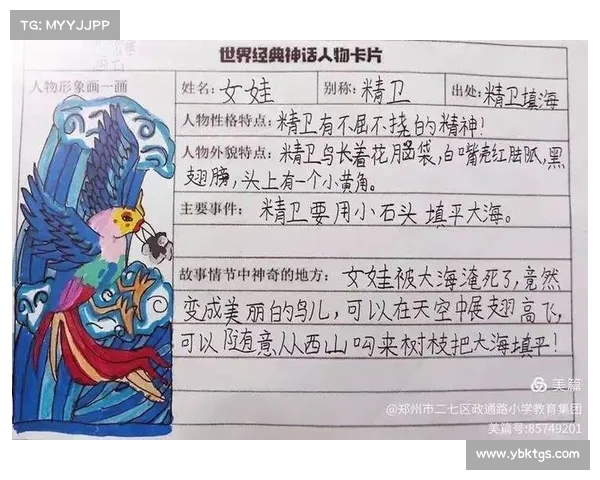 TG: MYYJJPP
世界经典神话人物卡片
人物形象画一画
姓名：女娃 别称：精卫 出处：精卫填海
人物性格特点：精卫有不屈不挠的精神！
人物外貌特点：精卫鸟长着花脑袋，白嘴壳红脚爪，黑
翅膀，头上有一个小黄角。
主要事件：精卫要用小石头填平大海。
故事情节中神奇的地方：女娃被大海淹死了，竟然
变成美丽的鸟儿，可以在天空中展翅高飞，
可以随意从西山叼来树枝把大海填平！
美篇
@郑州市二七区政通路小学教育集团
美篇号:85749201
www.ybktgs.com